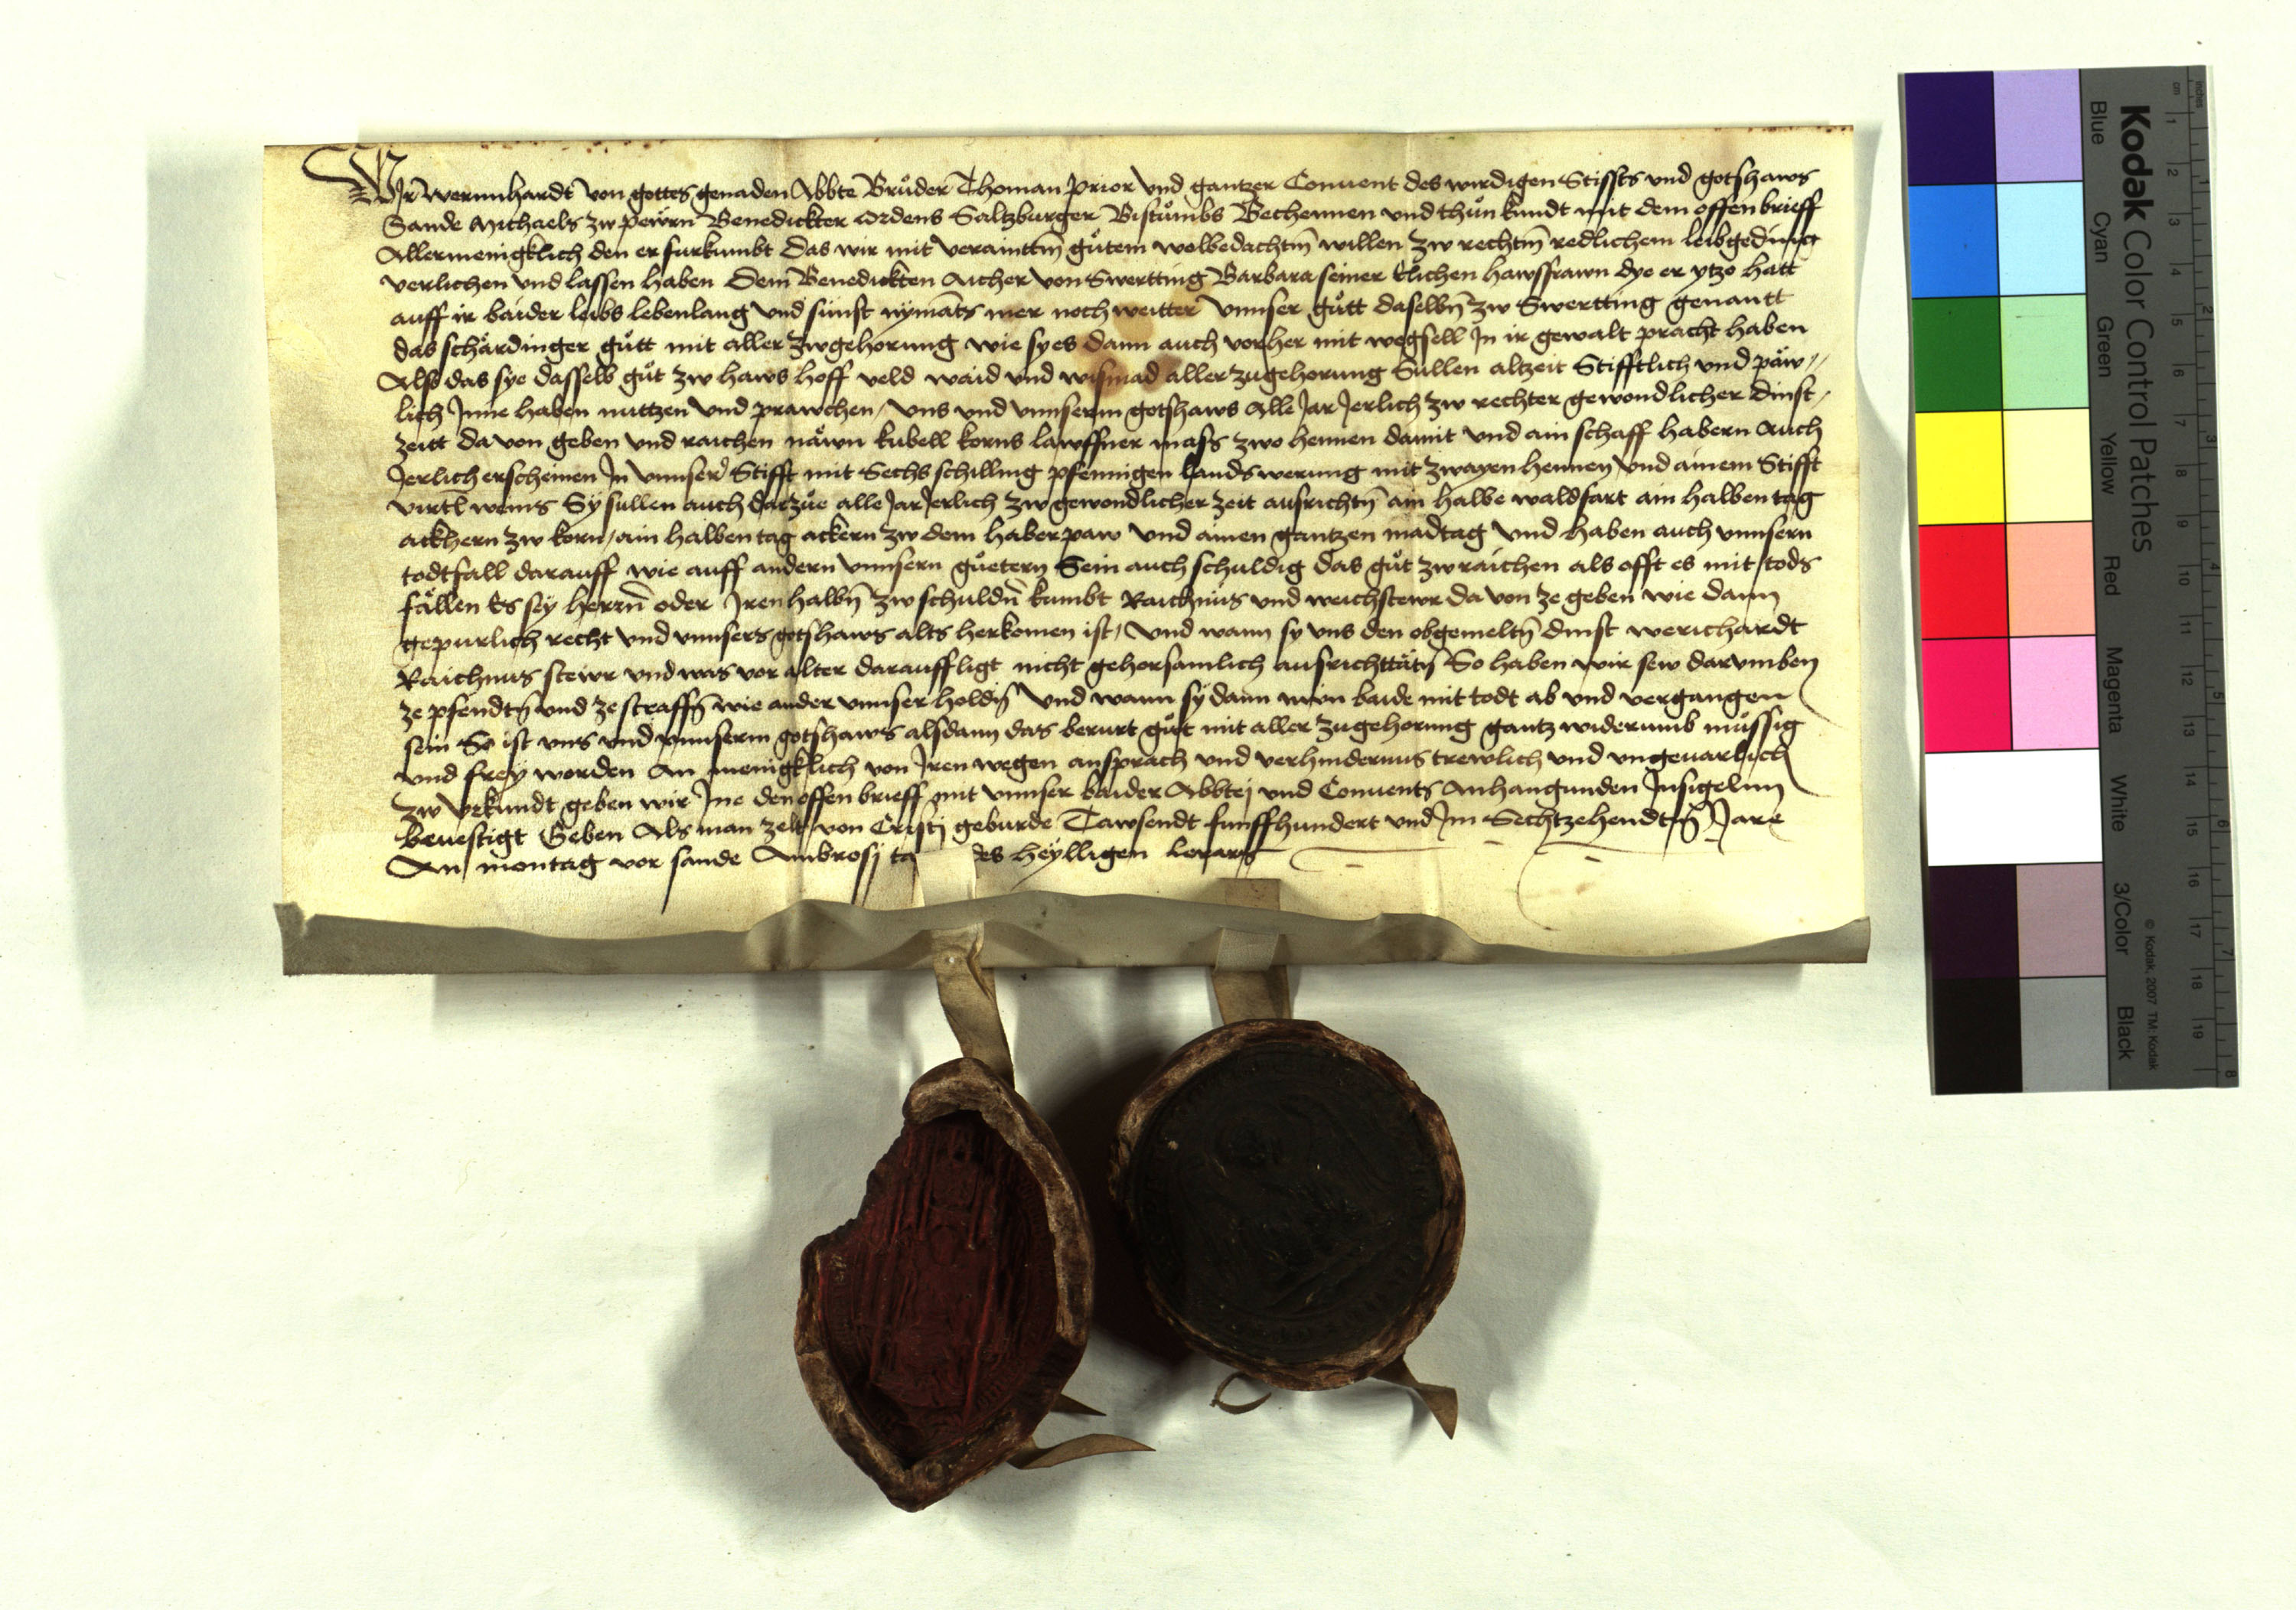 Wir Wernnhardt von gottes genaden Abbte Brůder Thoman prior vnd gantzer Conuent des wirdigen Stiffts vnd gotshaws
Sande Michaels zw pewrn Benedickter Ordens Saltzburger Bistůmbs Bechennen vnd thůn kundt mit dem offen brieff
Allermenigklich den er furkumbt Das wir mit verainttm̄ gůtem wolbedachtm̄ willen zw rechtm̄ redlichem leibgeding
verlichen vnd lassen haben Dem Benedickten Aicher von Swertting Barbara seiner elichen hawsfrawn dye er ytzo hatt
auff ir baider leibs lebenlang vnd sunst nymāts mer noch weitter vnnser gůtt daselbn̄ zw Swertting genantt
das schardinger gůtt mit aller zwgehorung wie sy es dann auch vorher mit wegsell In ir gewalt pracht haben
Also das sye dasselb gůt zw haws hoff veld waid vnd wismad aller zugehorung Sullen altzeit Stifftlich vnd päw//
lich Inne haben nuttzen vnd prawchen / vns vnd vnnserm gotshaws Alle Jar Jerlich zw rechter gewondlicher dinst /
zeitt da von geben vnd raichen näwn kubell korns lawffner mass zwo hennen damit vnd ain schaff habern Auch
Jerlich erscheinen In vnnser Stifft mit Sechs schilling pfennigen landswerung mit zwayen hennen vnd ainem Stifft
virtl weins Sy sullen auch darzůe alle Jar Jerlich zw gewondlicher zeit ausrichtn̄ ain halbe waldfart ain halben tag
ackhern zw korn / ain halben tag ackern zw dem haber paw vnd ainen gantzen madtag vnd haben auch vnnsern
todtfall darauff wie auff andern vnnsern gůetern Sein auch schuldig das gůt zw raichen als offt es mit tods
fällen Es sey herrn̄ oder Iren halbn̄ zw schuldn̄ kumbt Raichnus vnd weichstewr da von ze geben wie dann
gepurlich recht vnd vnnsers gotshaws alts herkomen ist / vnd wann sy vns den obgemeltn̄ dinst werichardt
Raichnus stewr vnd was vor alter darauff ligt nicht gehorsamlich ausrichttätn̄ So haben wir sew darumben
ze pfendtn̄ vnd ze straffn̄ wie ander vnnser holdn̄ vnd wann sy dann nun baide mit todt ab vnd vergangen
sein So ist vns vnd vnnserm gotshaws alsdann das berurt gůt mit aller zugehorung gantz widerumb můssig
vnd frey worden An menigklich von Iren wegen ansprach vnd verhindernus trewlich vnd vngeuarlich
zw vrkundt geben wir Ine den offen brieff mit vnnser baider Abbtej vnd Conuents Anhangunden Insigelnn
beuestigt Geben Als man zelt von Cristj geburde Tawsendt funffhundert vnd Im Sechtzehendtn̄ Jare
An montag vor sande Ambrosj ta des heylligen lerars
Kodak Color Control Patches
Blue Cyan Green Yellow Red Magenta White 3/Color Black
© Kodak, 2007 TM: Kodak
inches 1 2 3 4 5 6 7 8
cm 1 2 3 4 5 6 7 8 9 10 11 12 13 14 15 16 17 18 19